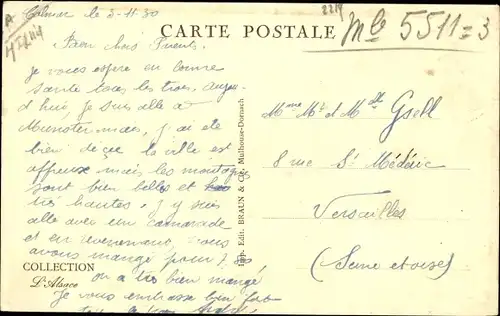 Colmar le 3-11-30
CARTE POSTALE
5511=3
Bien chers Parents.
Je vous espère en bonne
santé tous les trois, aujour-
d'hui, Je suis allé a
Munster mais, j'ai été
bien déçue la ville est
affreux mais, les montagnes
sont bien belles et
très hautes, j'y suis
allé avec un camarade
et en revenant, nous
avons mangé pour
on a très bien mangé
Je vous embrasse bien fort
Imp. Edit. BRAUN & Cie, Mulhouse-Dornach
COLLECTION
L'Alsace
Mme Mr et Mlle Gsell
8 rue St Médéric
Versailles
(Seine et oise)